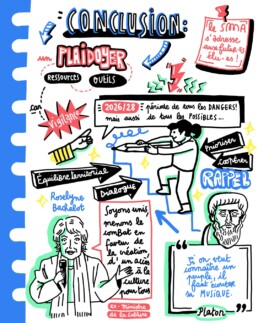 CONCLUSION:
un PLAIDOYER
RESSOURCES
OUTILS
le SMA
s'adresse
aux futur·es
élu·es!
car
Vigilance
2026/28 période de tous les DANGERS!
mais aussi de tous les POSSIBLES...
Prioriser
coopérer
Équilibre territorial
Dialogue
RAPPEL
Roselyne
Bachelot
Soyons unis,
menons le
combat en
faveur de
la création
d'un accès
à la
culture
pour tous
ex-Ministre
de la Culture
Si on veut
connaître un
peuple, il
faut écouter
sa MUSIQUE.
Platon